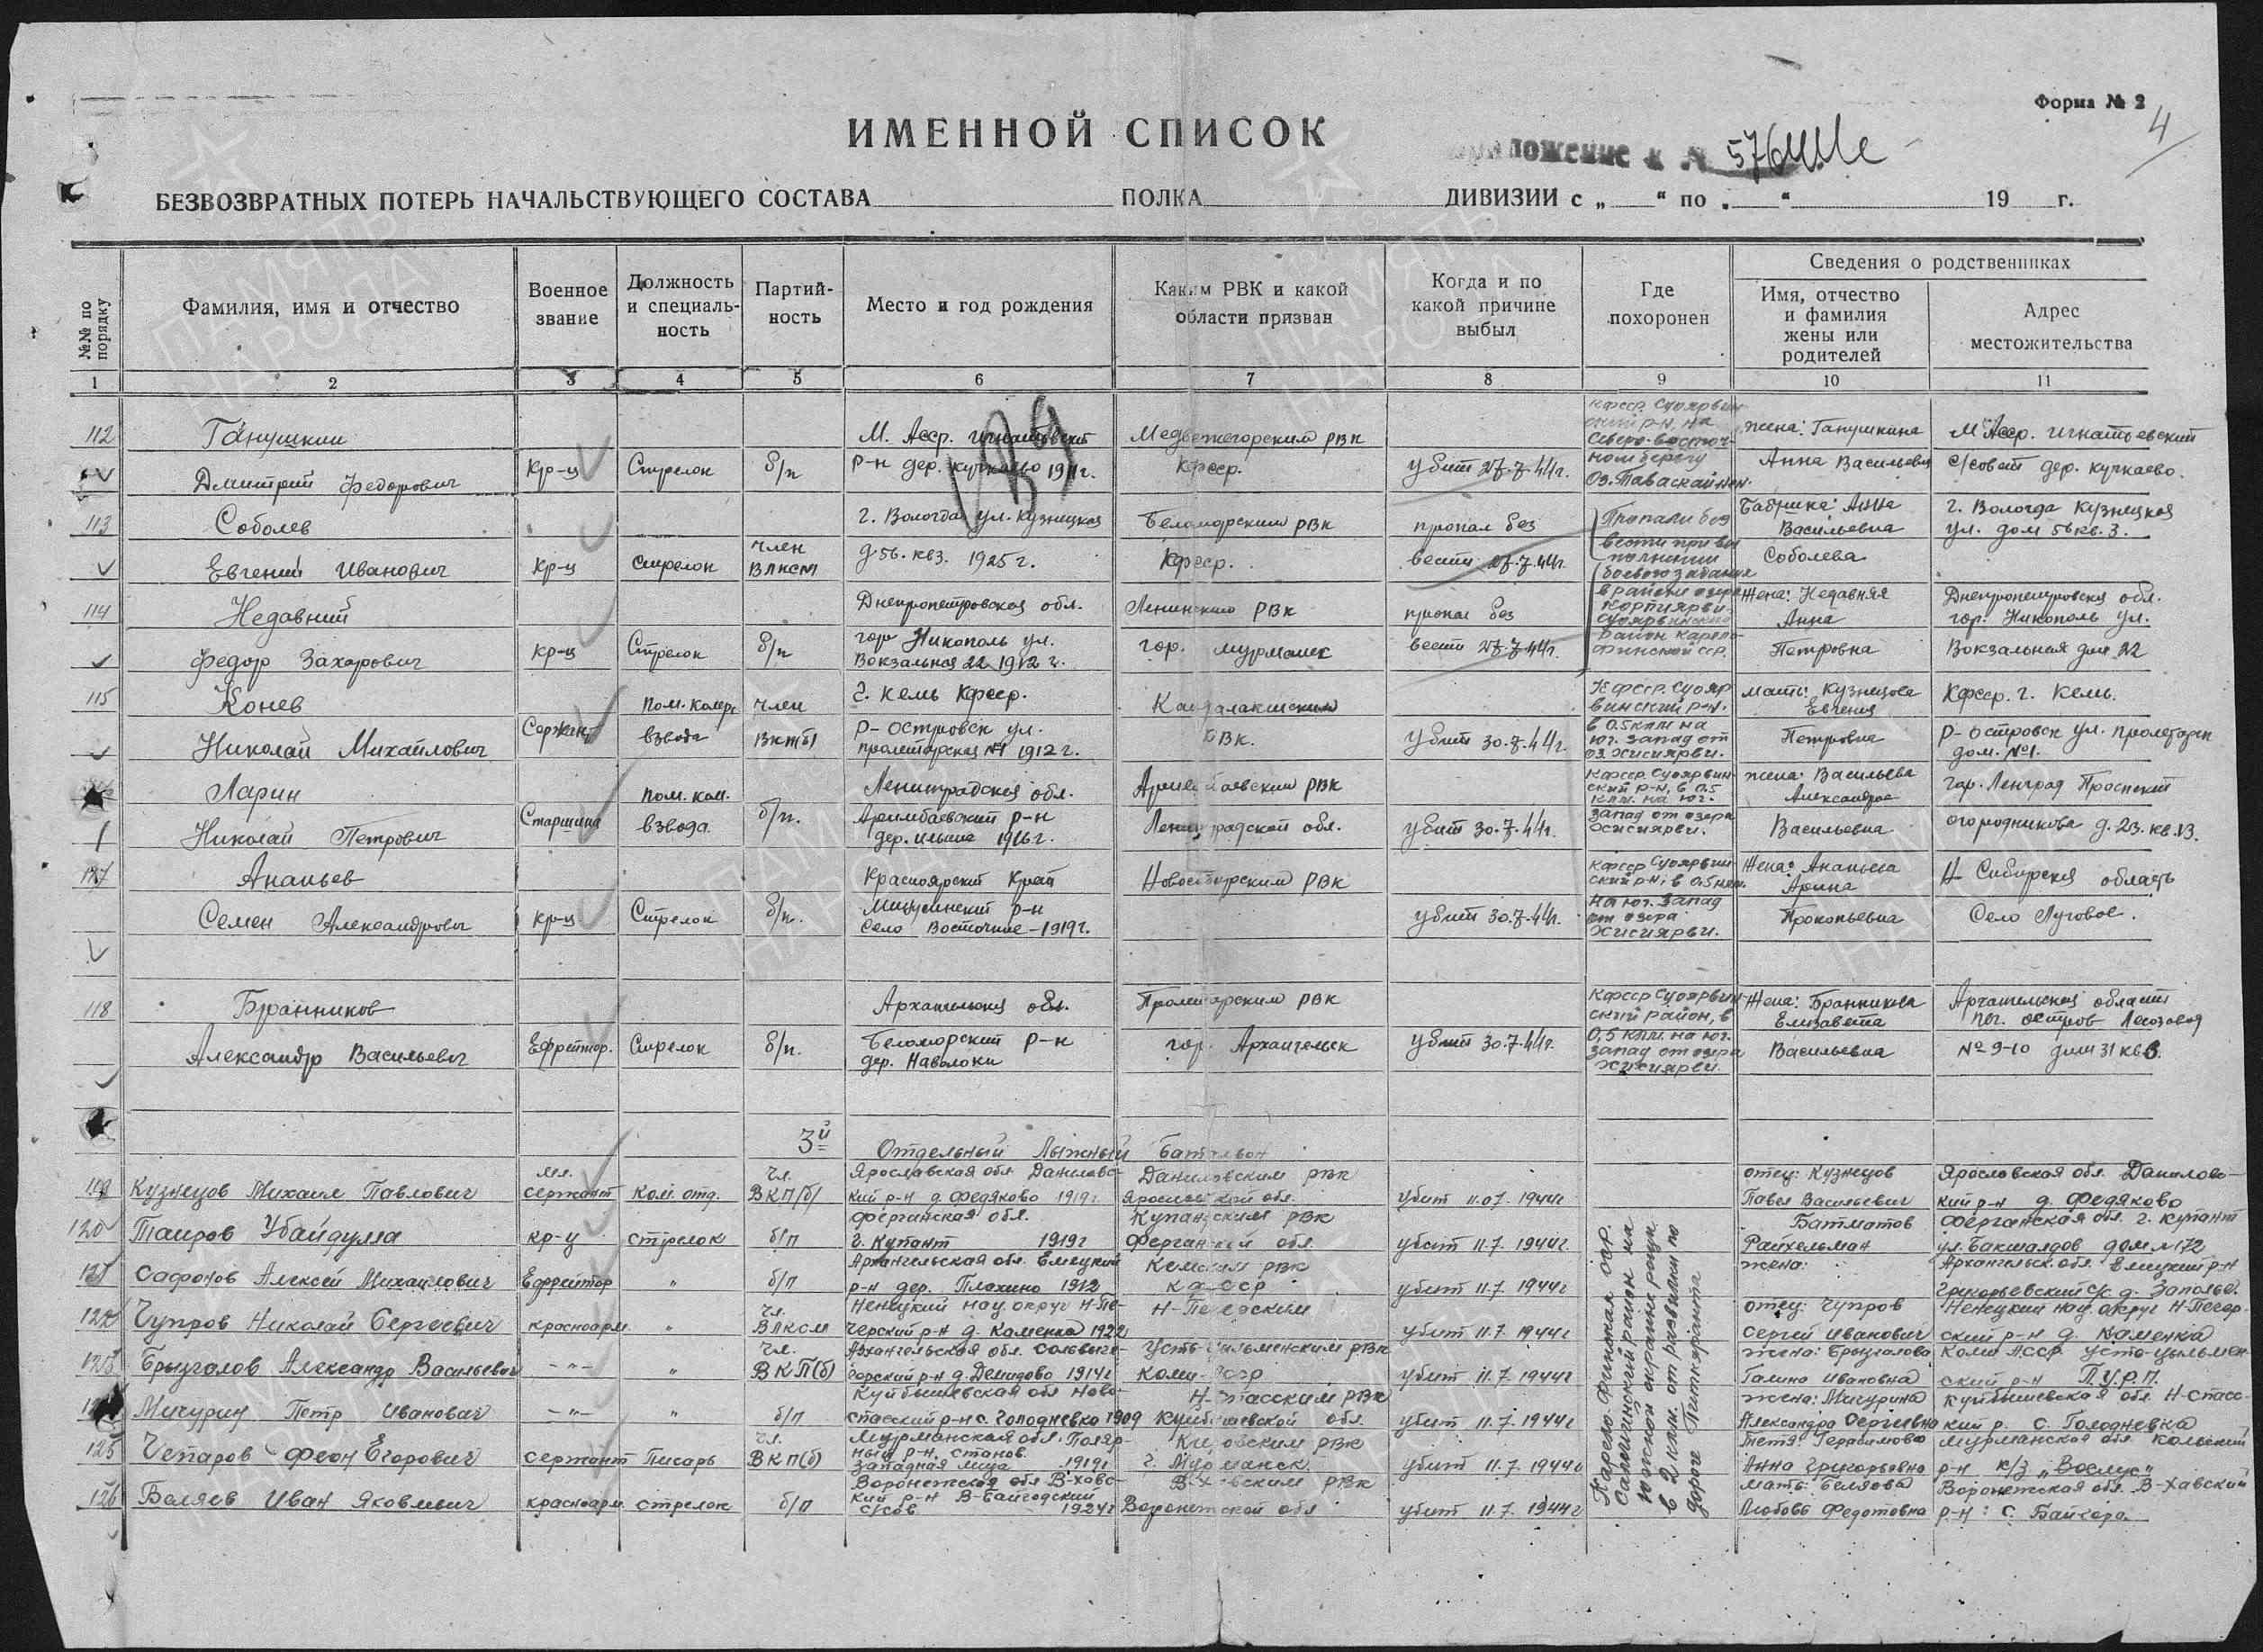 Форма № 2
4
ИМЕННОЙ СПИСОК
Приложение к № 576
БЕЗВОЗВРАТНЫХ ПОТЕРЬ НАЧАЛЬСТВУЮЩЕГО СОСТАВА ПОЛКА ДИВИЗИИ с „ “ по „ “ 19 г.
№№ по порядку
Фамилия, имя и отчество
Военное звание
Должность и специаль-ность
Партий-ность
Место и год рождения
Каким РВК и какой области призван
Когда и по какой причине выбыл
Где похоронен
Сведения о родственниках
Имя, отчество и фамилия жены или родителей
Адрес местожительства
1 2 3 4 5 6 7 8 9 10 11
112 Ганушкин М. Асср. Игнатовский Медвежегорским РВК Кфсср. Суоярвин- жена: Ганушкина М Асср. Игнатоевский
ский р-н, на
Северо-восточ-
Дмитрий Федорович Кр-ц Стрелок б/п р-н дер. Кучкаево 1911г. Кфсср. убит 27.7.44г. ном берегу Анна Васильевна с/совет дер. Кучкаево.
113 Соболев г. Вологда ул. Кузнецкая Беломорским РВК пропал без Пропали без Бабушка: Анна г. Вологда Кузнецкая
Васильевна ул. дом 56 кв. 3.
Евгений Иванович Кр-ц Стрелок член ВЛКСМ д. 56. кв 3. 1925г. Кфсср. вести 27.7.44г. вести при вы полнении Соболева
боевого задания
114 Недавний Днепропетровская обл. Ленинским РВК пропал без в районе озера Жена: Недавняя Днепропетровская обл.
Корпиярви Анна гор. Никополь ул.
Федор Захарович Кр-ц Стрелок б/п гор Никополь ул. гор. Мурманск вести 27.7.44г. район Карело- Петровна Вокзальная дом 22
Вокзальная 22 1912 г. Финской сср.
115 Конев Пом. ком. член г. Кемь Кфсср. Кандалакшским Кфсср. Суояр мать: Кузнецова Кфсср. г. Кемь.
винский р-н. Евгения
Николай Михайлович Сержант взвода ВКП(б) Р-островск ул. РВК. убит 30.7.44г. в 0.5 клм на Петровна Р-островск ул. Пролетарск
пролетарская №1 1912 г. юг. запад от оз Хисиярви. дом. №1.
Ларин Пом. ком. Ленинградская обл. Кфсср. Суоярвин жена: Васильева гор. Ленград Проспект
ский р-н, в 0.5 Александра
Николай Петрович Старшина взвода б/п. р-н Ленинградской обл. убит 30.7.44г. клм. на юг. запад от озера Хисиярви. Васильевна огородникова д. 23. кв. 13.
117 Ананьев Красноярский Край Новосибирским РВК Кфсср Суоярвин- Жена: Ананьева Н Сибирская область
ский р-н, в 0.5 клм. Арина
Семен Александрович кр-ц Стрелок б/п. р-н убит 30.7.44г. на юг. запад от озера Хисиярви. Прокопьевна Село Луговое.
Село Восточное - 1919г.
118 Бранников Архангельская обл. Пролетарским РВК Кфсср Суоярвин- Жена: Бранникова Архангельской области
ский район, в Елизавета пог. остров Лесозавод
Александр Васильевич Ефрейтор. Стрелок б/п. Беломорский р-н гор. Архангельск убит 30.7.44г. 0,5 клм. на юг. запад от озера Хисиярви. Васильевна № 9-10 дом 31 кв 6.
дер. Наволоки
3й Отдельный Лыжный Батальон
мл. чл. Ярославская обл Даниловс- Даниловским РВК отец: Кузнецов Ярославская обл. Данилово-
119 Кузнецов Михаил Павлович сержант Ком. отд. ВКП(б) кий р-н д. Федяково 1919г Ярославской обл. убит 11.07.1944г Павел Васильевич кий р-н д. Федяково
Ферганская обл. Купанским РВК Батматов Ферганская обл. г. Купант
120 Таиров Убайдулла кр-ц стрелок б/п г. Купант 1919г Ферганской обл убит 11.7.1944г Райхельман ул. дом №172
Архангельская обл. Емецкий Кемским РВК жена: Архангельск. обл. Емецкий р-н
121 Сафонов Алексей Михайлович Ефрейтор " б/п р-н дер. Плахино 1912 К ф сср убит 11.7.1944г Григорьевский с/с д. Заполье.
чл. Ненецкий нац. округ Н-Пе- Н-Печерским отец: Чупров Ненецкий нац. округ Н-Печер.
122 Чупров Николай Сергеевич красноарм. " ВЛКСМ черский р-н д. Каменка 1922 убит 11.7.1944г Сергей Иванович ский р-н д. Каменка
чл. Архангельская обл. Сольвыче- Усть-Цильменским РВК жена: Брызгалова Коми АССР Усть-Цыльмен-
123 Брызгалов Александр Васильевич -"- " ВКП(б) годский р-н д. Демидово 1914г Коми-АССР убит 11.7.1944г Галина Ивановна ский р-н П.У.Р.П.
Куйбышевская обл Ново- Н-Спасским РВК жена: Мичурина Куйбышевская обл. Н-Спасс-
Мичурин Петр Иванович -"- " б/п спасский р-н с. Голодяевка 1909 Куйбышевской обл. убит 11.7.1944г Александра Сергеевна кий р. с. Голодяевка
чл. Мурманская обл. Поляр- Кировским РВК тетя: Герасимова Мурманская обл Кольский
125 Чепаров Феон Егорович сержант Писарь ВКП(б) ный р-н, станов. Западная Лица 1919г г. Мурманск убит 11.7.1944г Анна Григорьевна р-н к/з
Воронежская обл В-хавс- В-Хавским РВК мать: Беляева Воронежская обл. В-Хавский
126 Беляев Иван Яковлевич красноарм. стрелок б/п кий р-н В-Байгодский с/сов 1924г Воронежской обл убит 11.7.1944г Любовь Федотовна р-н: с. Байгора
Карело-Финская ССР.
Салминский район на
южной окраине рощи
в 2 клм. от развилки по
дороге Питкяранта